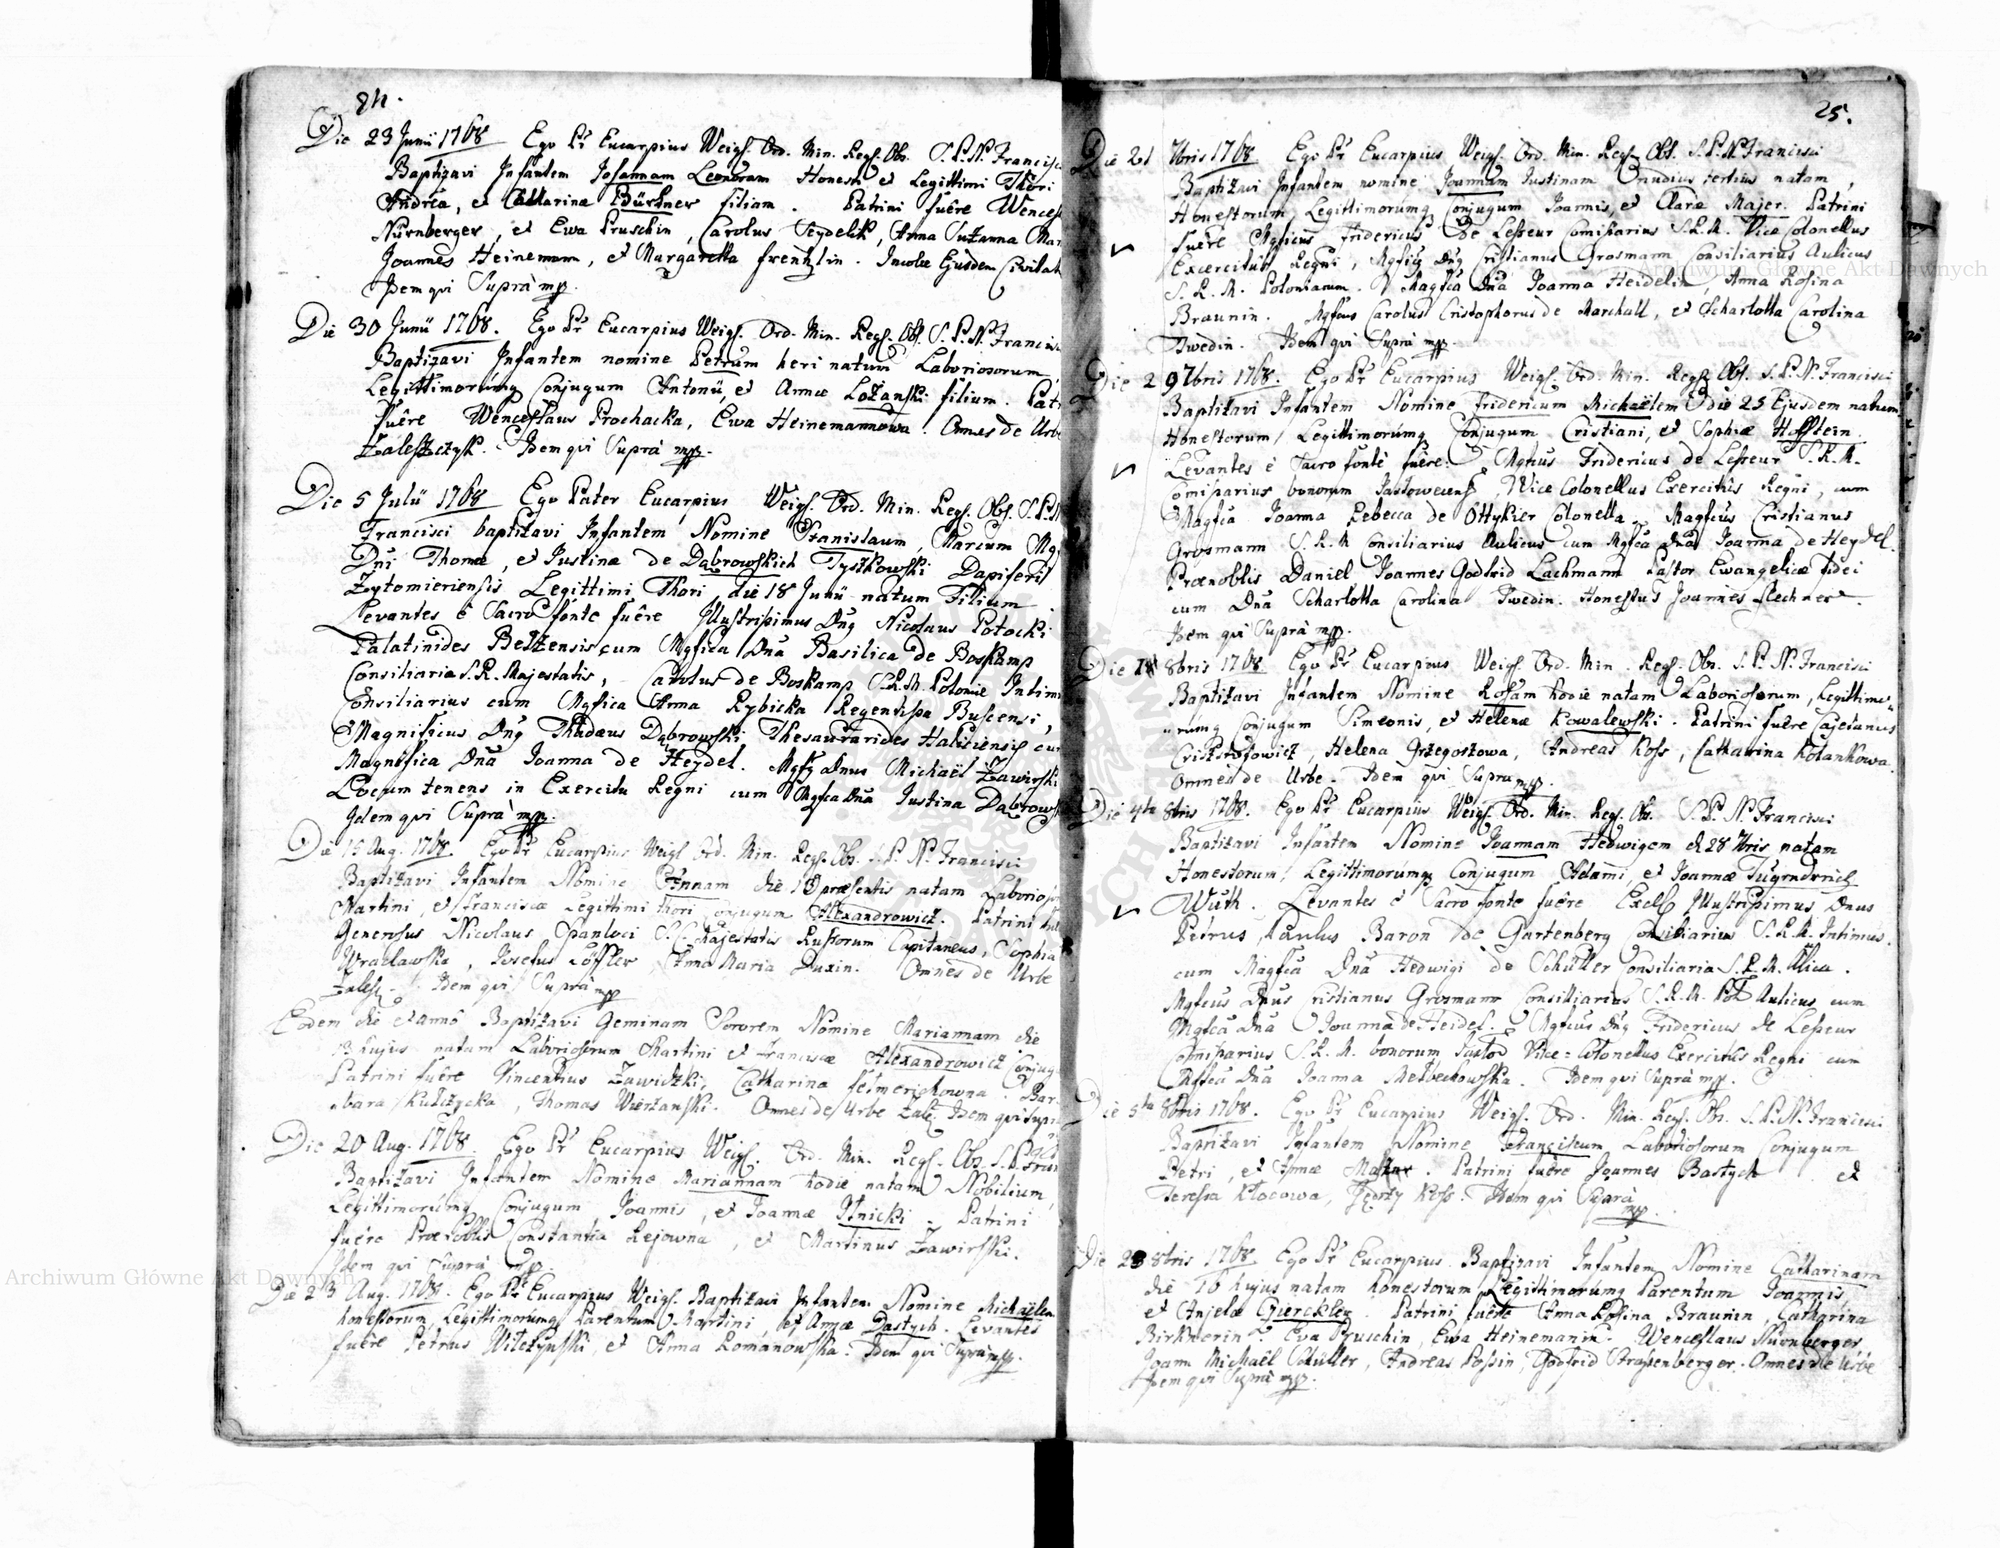 24.
Die 23 Junii 1768 Ego Pr Eucarpius Weigl. Ord. Min. Regl. Obs. S. P. N. Francisci
Baptizavi Infantem Johannam Leonoram Honesti et Legittimi Thori
Andrea, et Catharinæ Bürtner filiam. Patrini fuêre Wencesl
Nürnberger, et Ewa Pruschin, Carolus Seydelik, Anna Suzanna Mar
Joannes Heineman, et Margaretha frentzlin. Incolæ Ejusdem Civitat
Idem qui Suprà mpp.
Die 30 Junii 1768. Ego Pr Eucarpius Weigl. Ord. Min. Regl. Obs. S. P. N. Francisci
Baptizavi Infantem nomine Petrum heri natum Laboriosorum
Legittimorúmq Conjugum Antonii, et Annæ Lozanski filium. Patr
fuêre Wenceslaus Prochacka, Ewa Heinemannowa. Omnes de Urbe
Zaleszczyk. Idem qui Suprà mpp.
Die 5 Julii 1768 Ego Pater Eucarpius Weigl. Ord. Min. Regl. Obs. S. P. N
Francisci baptizavi Infantem Nomine Stanislaum, Marcum Mgf
Dni Thomæ, et Justinæ de Dąbrowskich Tyszkowski Dapiferi
Zytomieriensis Legittimi Thori, die 18 Junii natum Filium
Levantes è Sacro fonte fuêre Illustrissimus Dnq Nicolaus Potocki
Palatinides Belzensis, cum Mgfica Dnã Basilica de Boskamp
Consiliaria S. R. Majestatis, Carolus de Boskamp S.R.M. Poloniæ Intimi
Consiliarius cum Mgfica Anna Rybicka Regentissa Buscensi,
Magnificus Dnq Thadæus Dąbrowski Thesaurarides Haliciensis cum
Magnifica Dnã Joanna de Heydel. Mgfq Dnus Michaël Zawirski
Locum tenens in Exercitu Regni cum Mgfca Dnã Justina Dąbrowsk
Idem qui Suprà mpp.
Die 15 Aug. 1768 Ego Pr Eucarpius Weigl Ord. Min. Regl. Obs. S. P. N. Francisci
Baptizavi Infantem Nomine Annam die 13 præsentis natam Laborios
Martini, et Franciscæ Legittimi thori Conjugum Alexandrowicz. Patrini fuê
Generosus Nicolaus Spanloci S. C. Majestatis Russorum Capitaneus, Sophia
Wracławska, Josefus Löffler, Anna Maria Duxin. Omnes de Urbe
Zalesz. Idem qui Suprà mpp
Eodem die et annô Baptizavi Geminam Sororem Nomine Mariannam die
13 hujus natam Laboriosorum Martini et Franciscæ Alexandrowicz Conjug
Patrini fuêre Vincentius Zawidzki, Catharina felmerichowna. Bar
bara Kulczycka, Thomas Wierzanski. Omnes de Urbe Zalesz. Idem qui supr
Die 20 Aug. 1768. Ego Pr Eucarpius Weigl. Ord. Min. Regl. Obs. S. P. N. Fran
Baptizavi Infantem Nomine Mariannam hodie natam Nobilium,
Legittimorúmq Conjugum Joannis, et Joannæ Ilnicki. Patrini
fuêre Prænobilis Constantia Rejowna, et Martinus Zawirski.
Idem qui Suprà mpp.
Die 23 Aug. 1768. Ego Pr Eucarpius Weigl. Baptizavi Infantem Nomine Michaëlem
honestorum Legittimorúmq Parentum Martini, et Annæ Bastych. Levantes
fuêre Petrus Wilczynski, et Anna Romanowska. Idem qui Suprà mpp.
25.
Die 21 7bris 1768 Ego Pr Eucarpius Weigl. Ord. Min. Regl. Obs. S. P. N. Francisci
Baptizavi Infantem nomine Joannam Justinam nudius tertius natam,
Honestorum, Legittimorúmq Conjugum Joannis, et Claræ Majer. Patrini
fuêre Mgficus Fridericus de Lefseur Comissarius S.R.M. Vice Colonellus
Excercitûs Regni, Mgficq Dnq Cristianus Grosmann Consiliarius Aulicus
S. R. M. Poloniarum. Magfca Dnã Joanna Heidelin, Anna Rosina
Braunin. Mgfcus Carolus Cristophorus de Marchall, et Scharlotta Carolina
Twedin. Idem qui Suprà mpp.
Die 29 7bris 1768. Ego Pr Eucarpius Weigl. Ord. Min. Regl. Obs. S. P. N. Francisci
Baptizavi Infantem Nomine Fridericum Michaëlem die 25 Ejusdem natum,
Honestorum, Legittimorúmq Conjugum Cristiani, et Sophiæ Hoffstein.
Levantes è Sacro fonte fuêre: Mgfcus Fridericus de Lefseur S.R.M.
Comissarius bonorum Jastowecens, Vice Colonellus Exercitûs Regni, cum
Magfca Joanna Rebecca de Ottykier Colonella, Magfcus Cristianus
Grosmann S.R.M Consiliarius Aulicus cum Mgfca Dnã Joanna de Heydel.
Prænobilis Daniel Joannes Godfrid Lachmann Pastor Ewangelicæ fidei
cum Dnã Scharlotta Carolina Twedin. Honestus Joannes Lechner.
Idem qui Suprà mpp.
Die 8bris 1768. Ego Pr Eucarpius Weigl. Ord. Min. Regl. Obs. S. P. N. Francisci
Baptizavi Infantem Nomine Rosam hodie natam Laboriosorum, Legittimo
rúmq Conjugum Simeonis, et Helenæ Kowalewski. Patrini fuêre Cajetanus
Crisztofowicz, Helena Grzegorzowa, Andreas Koss, Catharina Kotankowa.
Omnes de Urbe. Idem qui Supra mpp.
Die 4ta 8bris 1768. Ego Pr Eucarpius Weigl. Ord. Min. Regl. Obs. S. P. N. Francisci
Baptizavi Infantem Nomine Joannam Hedwigem d. 28 7bris natam
Honestorum, Legittimorúmq Conjugum Adami, et Joannæ Tugendreich
Wuth. Levantes è Sacro fonte fuêre Excell Illustrissimus Dnus
Petrus, Paulus Baron de Gartenberg Consiliarius S.R.M. Intimus.
cum Magfca Dnã Hedwigi de Schüller Consiliaria S.R.M. Ulica.
Mgfcus Dnus Cristianus Grosmann Consiliarius S.R.M. Pol Aulicus cum
Mgfca Dnã Joanna de Heidel. Mgfcus Dnq Fridericus de Lefseur
Comissarius S.R.M. bonorum Jastow Vice-Colonellus Exercitûs Regni cum
Mgfca Dnã Joanna Melbechowska. Idem qui Suprà mpp.
Die 5ta 8bris 1768. Ego Pr Eucarpius Weigl. Ord. Min. Regl. Obs. S. P. N. Francisci
Baptizavi Infantem Nomine Franciscum Laboriosorum Conjugum
Petri, et Annæ Mazur. Patrini fuêre Joannes Bastych et
Teressa Kłocowa, Jędrzy Koss. Idem qui Suprà
mpp.
Die 23 8bris 1768. Ego Pr Eucarpius Baptizavi Infantem Nomine Catharinam
die 16 hujus natam honestorum Legittimorúmq Parentum Joannis,
et Anjelæ Gierckler. Patrini fuêre Anna Rosina Braunin, Catharina
Birknerin. Eva Pruschin, Ewa Heinemanin. Wenceslaus Nürnberger,
Joann Michaël Schüller, Andreas Possin, Godfrid Strassenberger. Omnes de Urbe
Idem qui Suprà mpp.
Archiwum Główne Akt Dawnych
Archiwum Główne Akt Dawnych